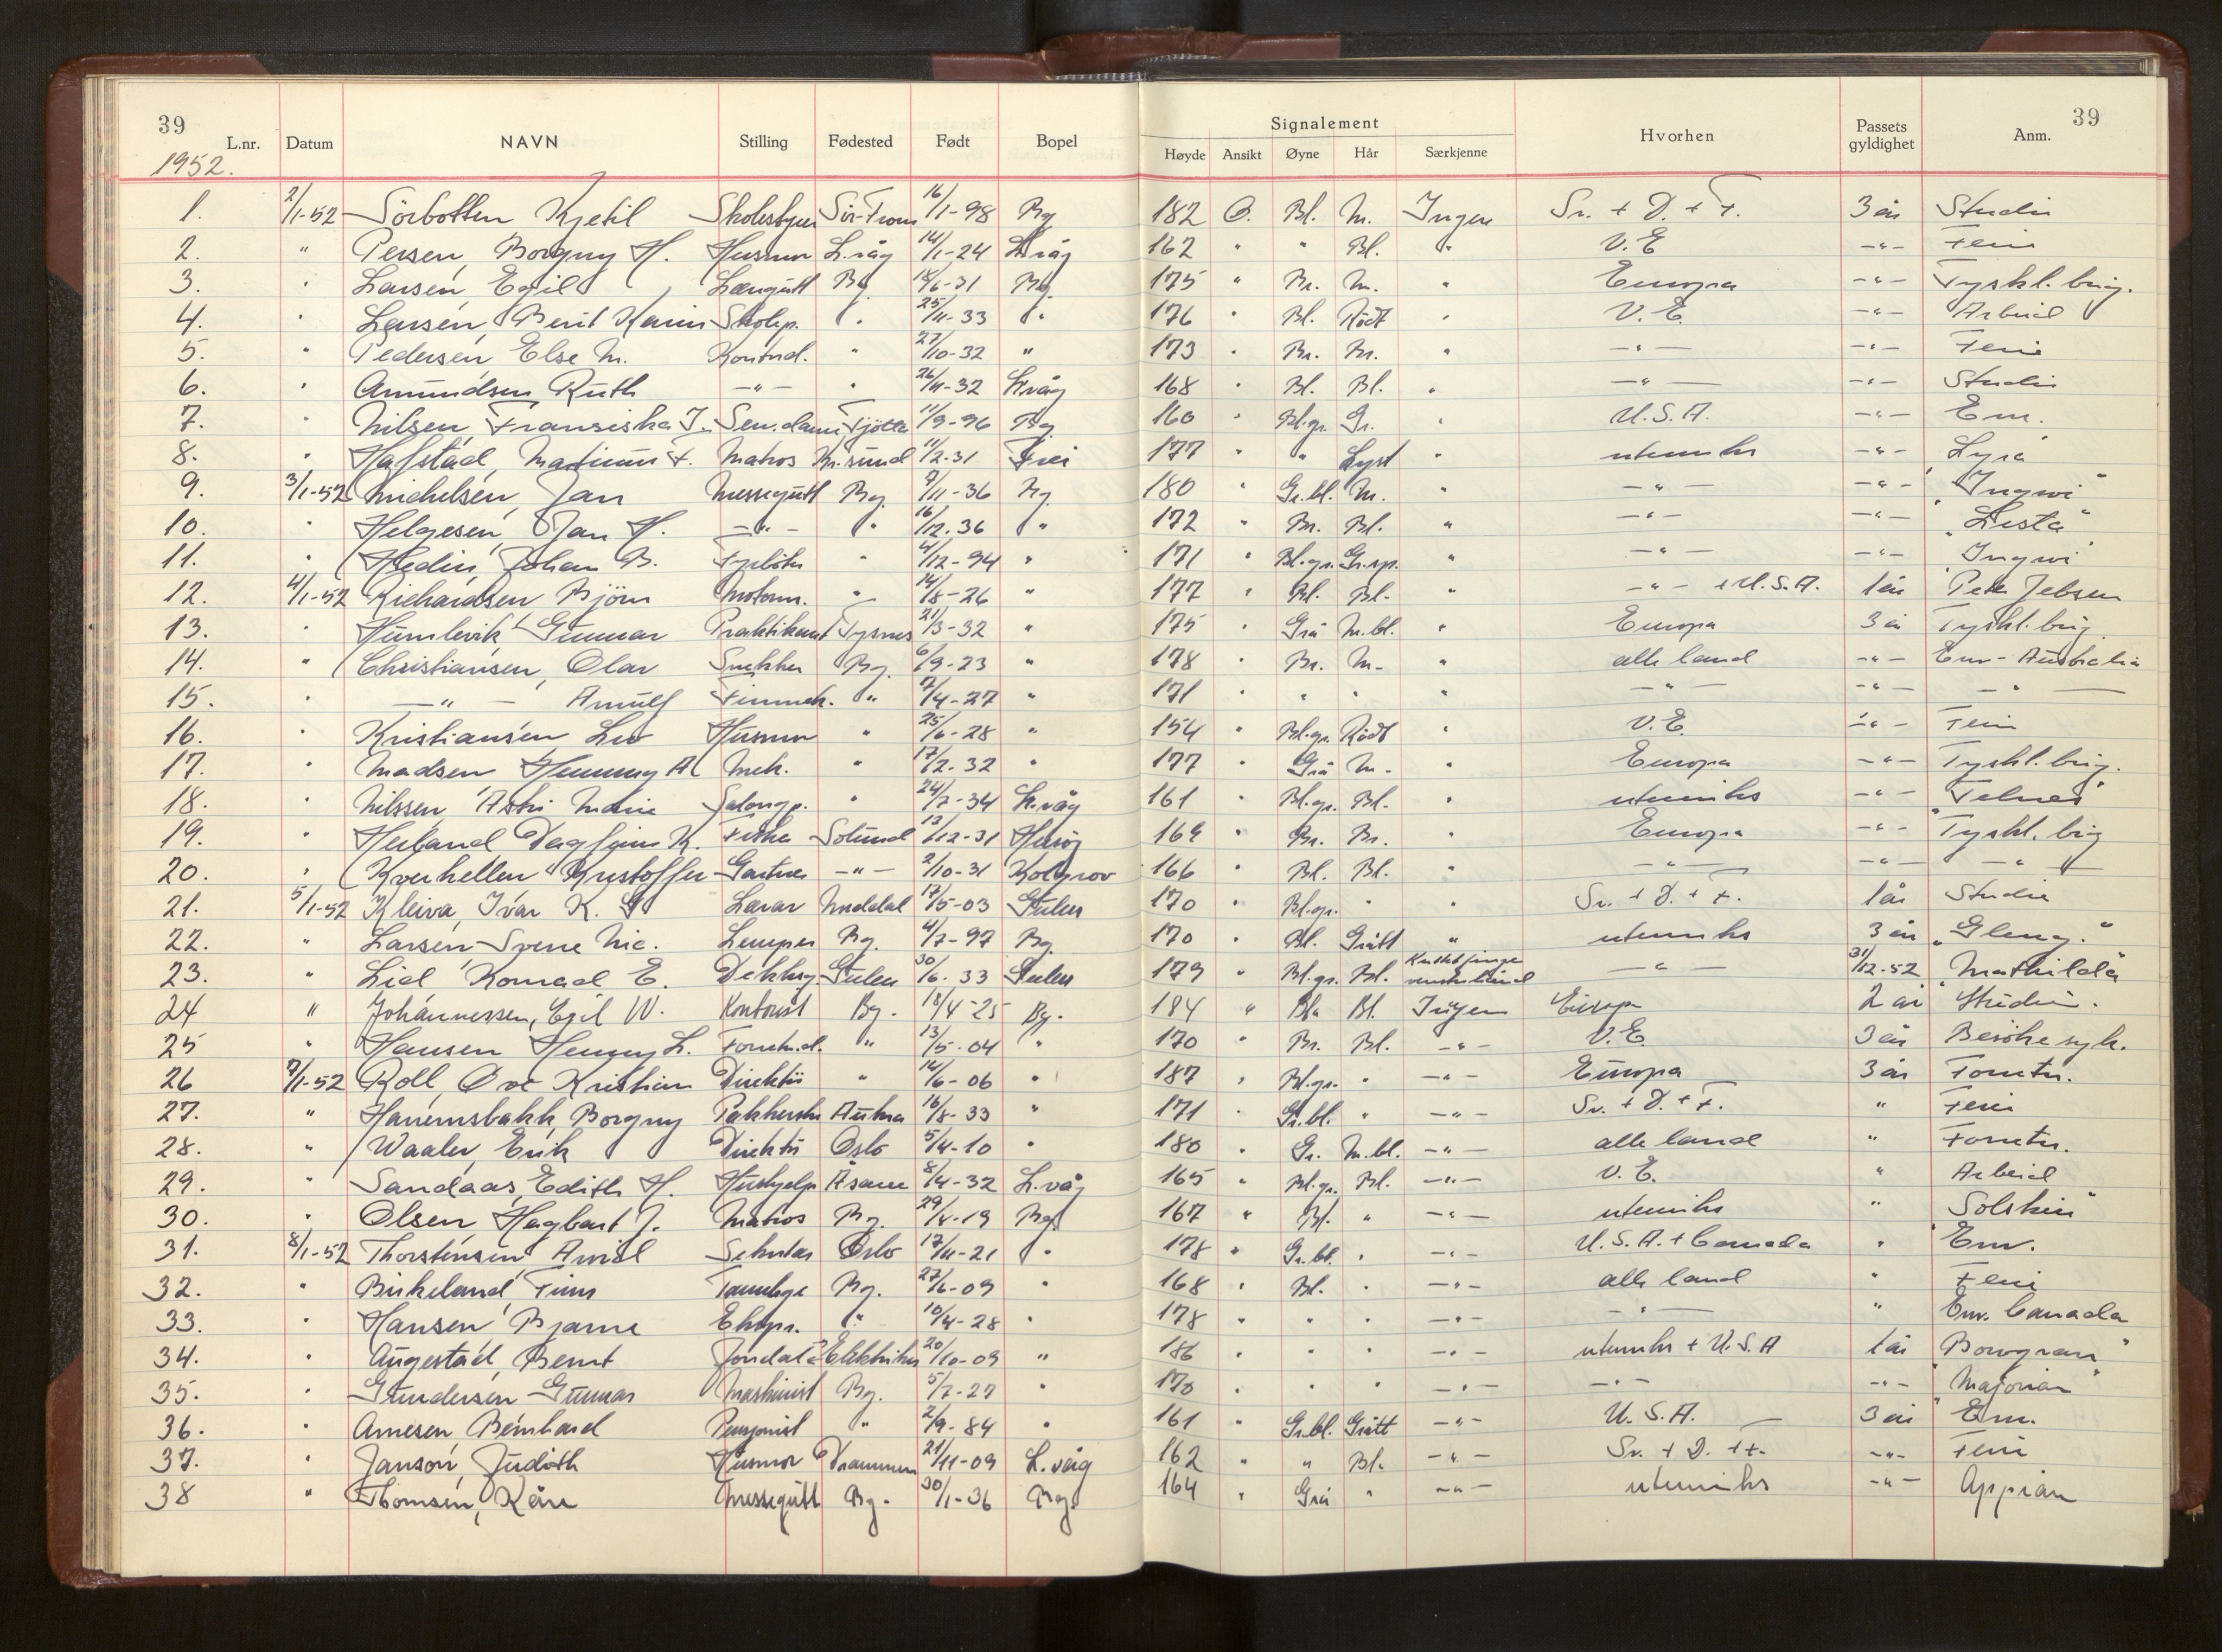 39
39
Signalement
L.nr. Datum NAVN Stilling Fødested Født Bopel Høyde Ansikt Øyne Hår Særkjenne Hvorhen Passets gyldighet Anm.
1952.
1. 2/1-52 Sörbotten Kjetil 16/1-98 Bg 182 O. Bl. M. Ingen Sv. + D. + F. 3 år Studie
2. " Persen, Borgny H. Husmor L.våg 14/1-24 L.våg 162 " " Bl. " V.E -"- Ferie
3. " Larsen, Egil Bg. 18/6-31 Bg. 175 " Br. M. " Europa -"- Tyskl.brig.
4. " Larsen, Berit Karin 25/11-33 " 176 " Bl. Rödt " V.E. -"- Arbeid
5. " Pedersen Else M. Kontord. " 27/10-32 " 173 " Br. Br. " -"- -"- Ferie
6. " Amundsen, Ruth -"- " 26/11-32 L.våg 168 " Bl. Bl. " -"- -"- Studie
7. " Nilsen, Fransiska J. Tjötta 11/9-96 Bg. 160 " Bl.gr. Gr. " U.S.A. -"- Em.
8. " Hafstad, Martinus F. Matros Kr.sund 11/2-31 Frei 177 " " Lyst " utenriks -"- Lyra
9. 3/1-52 Michelsen, Jan Messegutt Bg. 7/11-36 Bg. 180 " Gr.bl. M. " -"- -"- "Ingwi"
10. " Helgesen, Jan H. -"- " 16/12-36 " 172 " Br. Bl. " -"- -"- "Lista"
11. " Hedin, Johan B. Fyrböter " 4/12-94 " 171 " Bl.gr. Gr.sp. " -"- -"- Ingwi
12. 4/1-52 Richardsen, Björn Motorm. " 14/8-26 " 177 " Bl. Bl. " -"- + U.S.A. 1 år Peter Jebsen
13. " Humlevik Gunnar Praktikant Tysnes 21/3-32 " 175 " Grå M.bl. " Europa 3 år Tyskl.brig
14. " Christiansen, Olav Snekker Bg. 6/9-23 " 178 " Br. M. " alle land -"- Em - Australia
15. " -"- Arnulf " 7/4-27 " 171 " " " " -"- -"- -"-
16. " Kristiansen, Liv Husmor " 25/6-28 " 154 " Bl.gr. Rödt " V.E. -"- Ferie
17. " Madsen Henning A Mek. " 17/2-32 " 177 " Grå M. " Europa -"- Tyskl.brig.
18. " Nilssen, Astri Marie Salongp. " 24/7-34 L.våg 161 " Bl.gr. Bl. " utenriks -"- "Telnes"
19. " Dagfinn K. Fisker Solund 13/12-31 169 " Br. Br. " Europa -"- Tyskl.brig
20. " Kverhellen Kristoffer Gartner -"- 2/10-31 Kolgrov 166 " Bl. Bl. " -"- -"- -"-
21. 5/1-52 Kleiva, Ivar K. G Lærar 17/5-03 Gulen 170 " Bl.gr. " " Sv. + D. + F. 1 år Studie
22. " Larsen Sverre Nic. Lemper Bg. 4/7-97 Bg. 170 " Bl. Grått " utenriks 3 år "Gleny."
23. " Lid Konrad E. Gulen 30/6-33 Gulen 179 " Bl.gr. Bl. -"- 31/12-52 "Mathilda"
24 " Johannessen, Egil W. Kontorist Bg. 13/4-25 Bg. 184 " Bl. Bl. Ingen Europa 2 år Studie.
25 " Hansen Henny L. Forretn.d. " 13/5-04 " 170 " Br. Bl. -"- V.E. 3 år Besöke syk.
26 7/1-52 Roll, Ove Kristian Direktör " 14/6-06 " 187 " Bl.gr. " -"- Europa 3 år Forretn.
27. " Harnemsbakk, Borgny Aukra 16/8-33 " 171 " Gr.bl. " -"- Sv. + D. + F. " Ferie
28. " Waaler, Erik Direktör Oslo 5/4-10 " 180 " Gr. M.bl. -"- alle land " Forretn.
29. " Sandaas, Edith H. Hushjelp Åsane 8/4-32 L.våg 165 " Bl.gr. Bl. -"- V.E. " Arbeid
30. " Olsen, Hagbart J. Matros Bg. 29/4-19 Bg. 167 " Bl. " -"- utenriks " "Solskin"
31. 8/1-52 Thorstensen Arvid Sekretær Oslo 17/11-21 " 178 " Gr.bl. " -"- U.S.A. + Canada " Em.
32. " Birkeland, Finn Tannlege Bg. 27/6-09 " 168 " Bl. " -"- alle land " Ferie
33. " Hansen Bjarne Eksp. " 10/4-28 " 178 " " " -"- -"- " Em. Canada
34. " Augestad, Bernt Jondal Elektriker 20/10-09 " 186 " " " -"- utenriks + U.S.A 1 år "Bowgran"
35. " Gundersen Gunnar Maskinist Bg. 5/7-27 " 170 " " " -"- -"- -"- "Majorian"
36. " Arnesen, Bernhard Pensjonist " 2/9-84 " 161 " Gr.bl. Grått -"- U.S.A. 3 år Em.
37. " Janson, Judith Husmor Drammen 21/11-09 L.våg 162 " " Bl. -"- Sv. + D. + F. -"- Ferie
38 " Thomsen, Kåre Messegutt Bg. 30/1-36 Bg. 164 " Grå " -"- utenriks -"- Appian